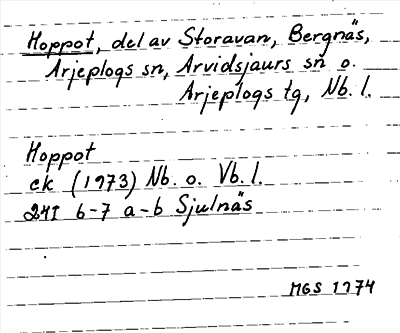 Hoppot, del av Storavan, Bergnäs,
Arjeplogs sn, Arvidsjaurs sn o.
Arjeplogs tg, Nb. l.
Hoppot
ek (1973) Nb. o. Vb. l.
24I 6-7 a-b Sjulnäs
MGS 1974